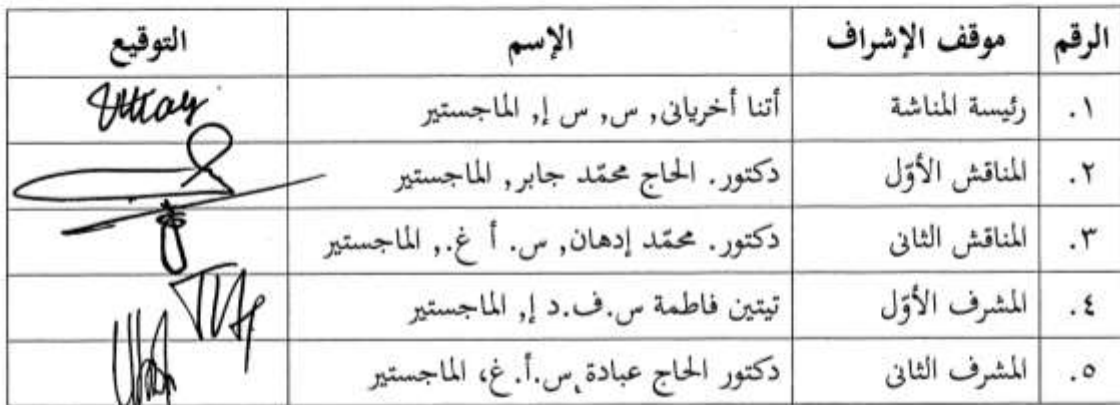 الرقم موقف الإشراف الإسم التوقيع
١. رئيسة المناشة أتنا أخريانى, س, س إ, الماجستير
٢. المناقش الأوّل دكتور. الحاج محمّد جابر, الماجستير
٣. المناقش الثانى دكتور. محمّد إدهان, س. أ غ., الماجستير
٤. المشرف الأوّل تيتين فاطمة س.ف.د إ, الماجستير
٥. المشرف الثانى دكتور الحاج عبادة,س.أ.غ، الماجستير